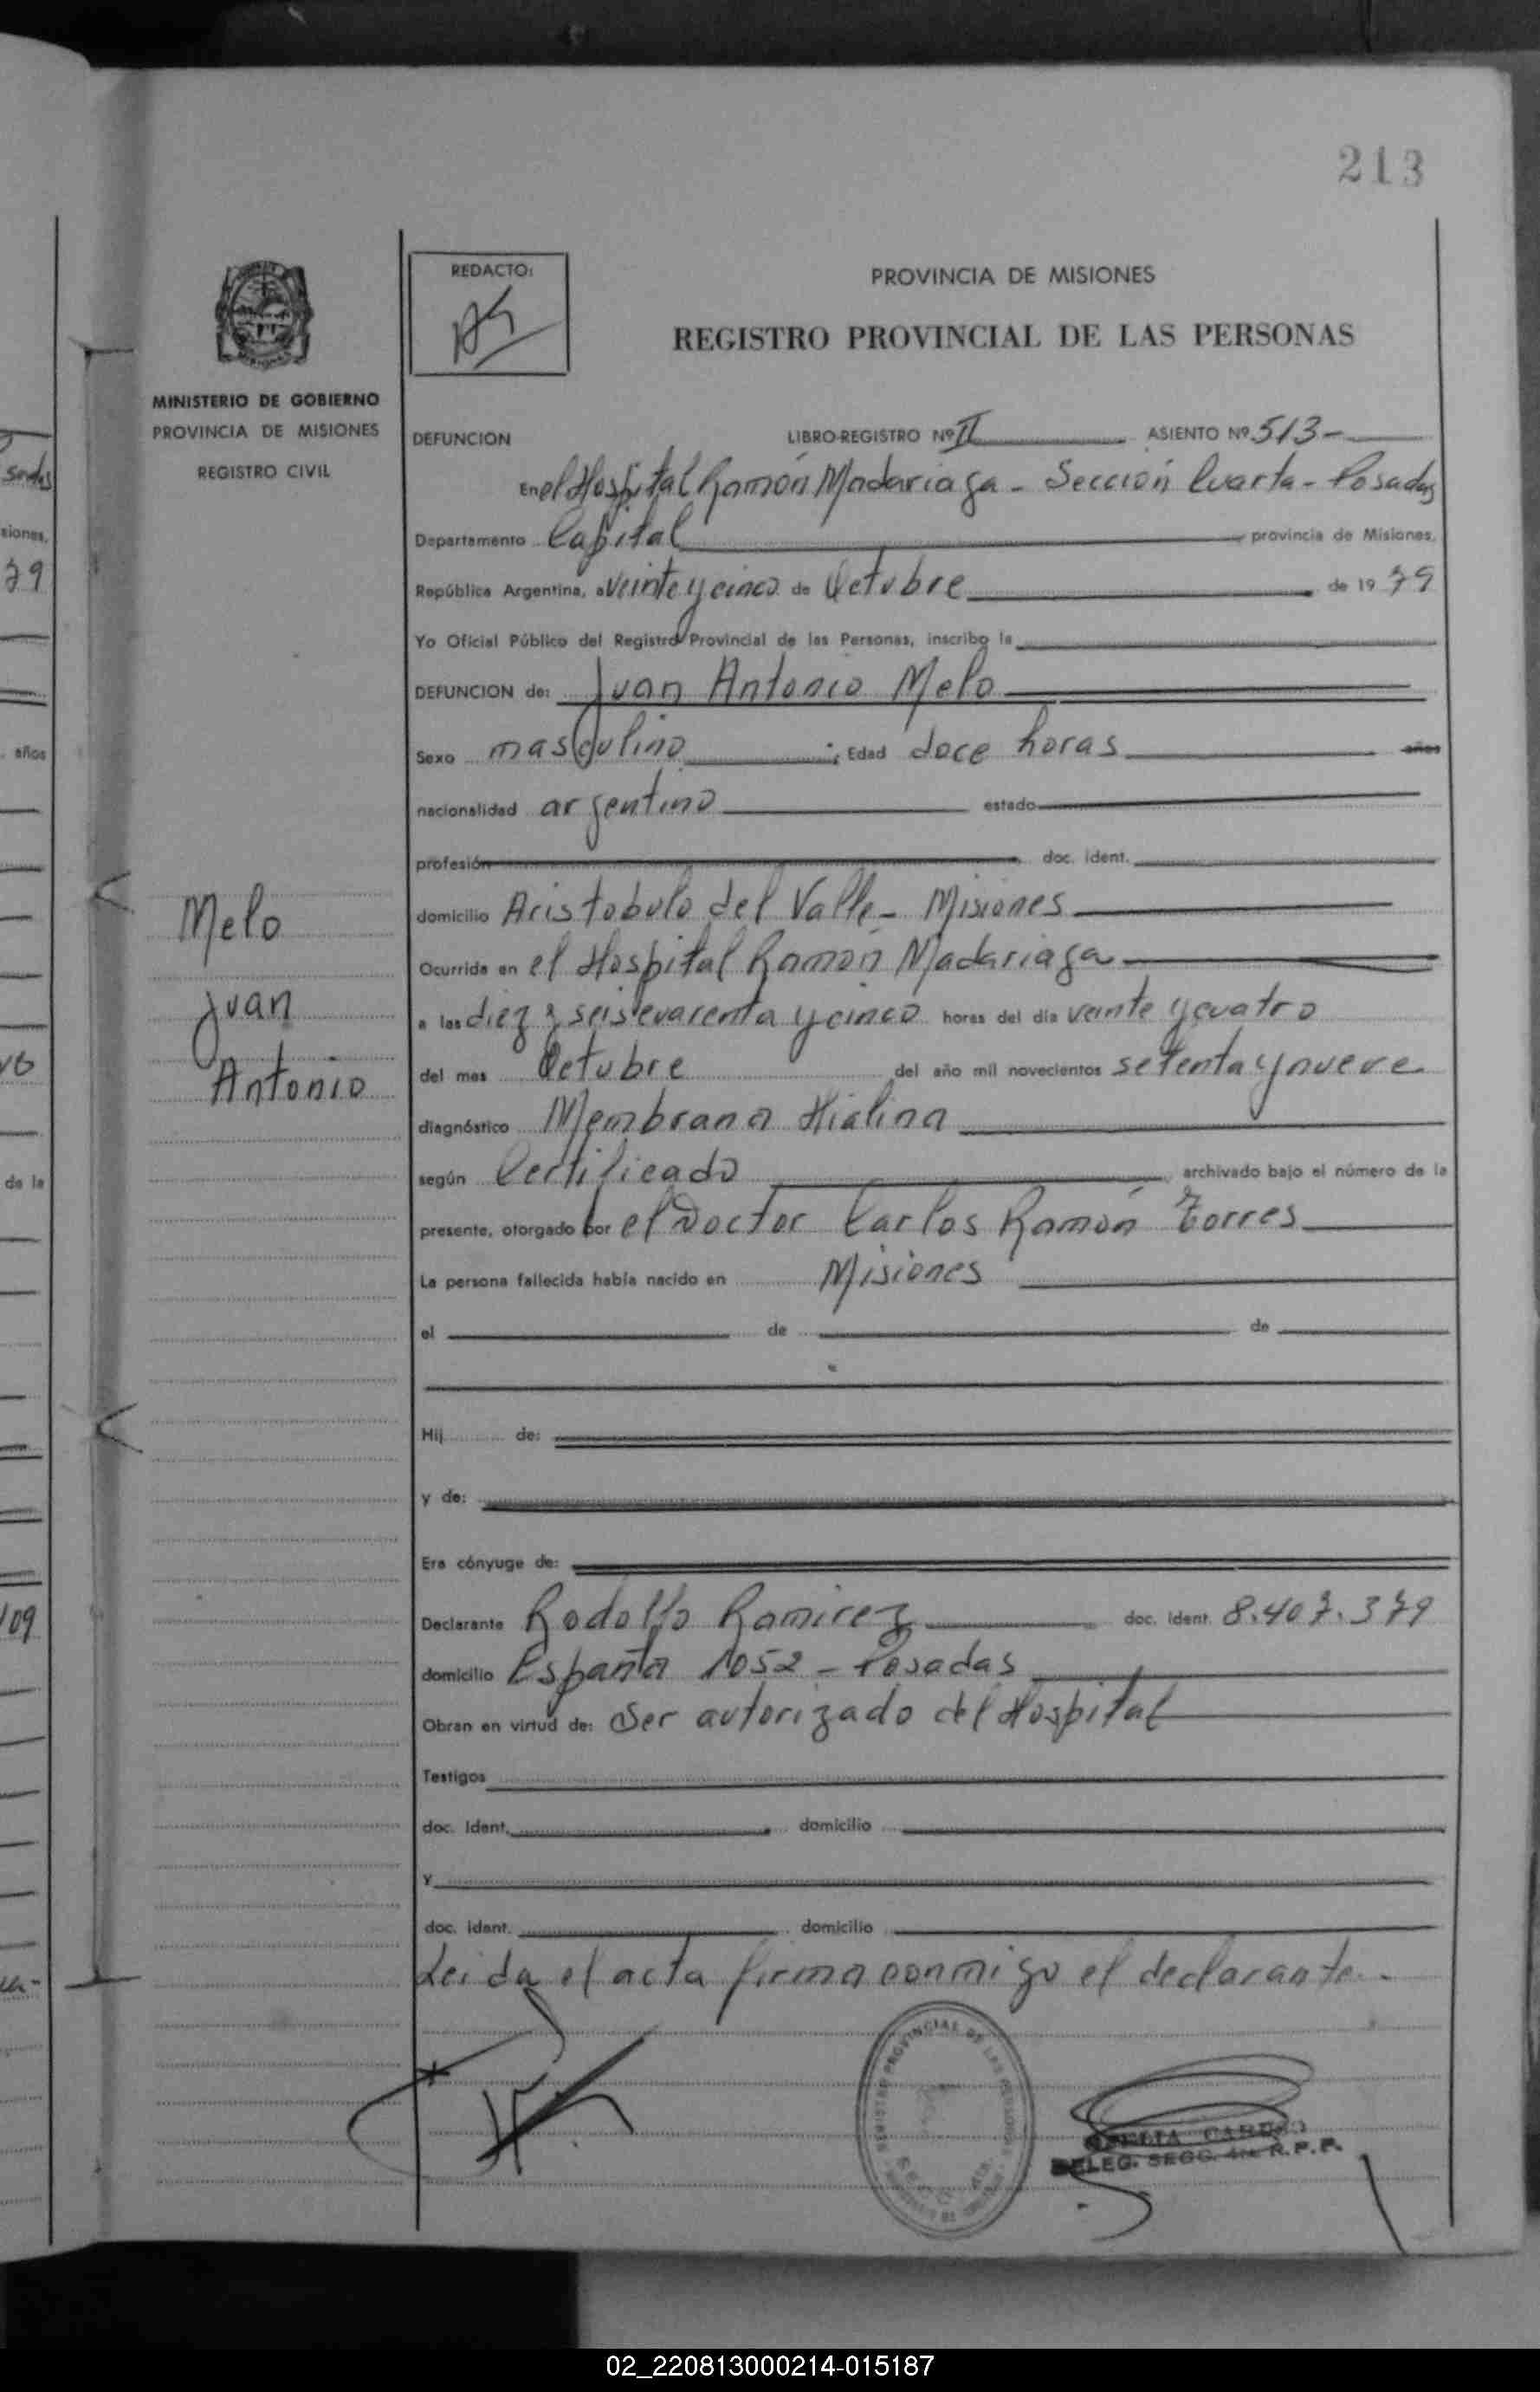 213
REDACTO:
PROVINCIA DE MISIONES
REGISTRO PROVINCIAL DE LAS PERSONAS
MINISTERIO DE GOBIERNO
PROVINCIA DE MISIONES
REGISTRO CIVIL
DEFUNCION LIBRO-REGISTRO Nº II ASIENTO Nº 513-
En el Hospital Ramón Madariaga - Sección Cuarta - Posadas
Departamento Capital provincia de Misiones,
República Argentina, a veinte y cinco de Octubre de 1979
Yo Oficial Público del Registro Provincial de las Personas, inscribo la
DEFUNCION de: Juan Antonio Melo
Sexo masculino; Edad doce horas años
nacionalidad argentino estado
profesión doc. ident.
Melo
Juan
Antonio
domicilio Aristobulo del Valle - Misiones
Ocurrida en el Hospital Ramón Madariaga
a las diez y seis cuarenta y cinco horas del día veinte y cuatro
del mes Octubre del año mil novecientos setenta y nueve
diagnóstico Membrana Hialina
según Certificado archivado bajo el número de la
presente, otorgado por el Doctor Carlos Ramón Torres
La persona fallecida había nacido en Misiones
el de de
Hij de:
y de:
Era cónyuge de:
Declarante Rodolfo Ramirez doc. ident. 8.407.379
domicilio España 1052 - Posadas
Obran en virtud de: Ser autorizado del Hospital
Testigos
doc. Ident. domicilio
Y
doc. ident. domicilio
Leida el acta firma conmigo el declarante.-
DELEG. SECC. 4ta R.P.P.
79
años
de la
109
02_220813000214-015187